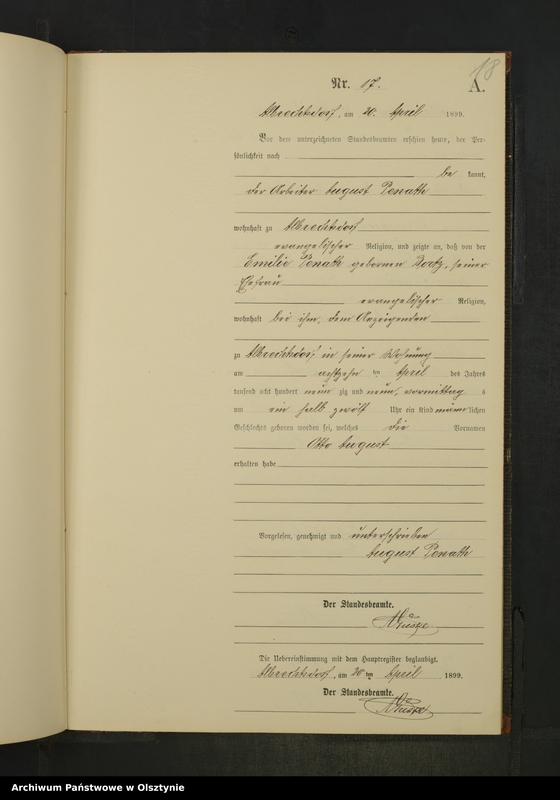 18
Nr. 17.
A.
Albrechtsdorf, am 20. April 1899.
Vor dem unterzeichneten Standesbeamten erschien heute, der Per-
sönlichkeit nach
be kannt,
der Arbeiter August Ponath
wohnhaft zu Albrechtsdorf
evangelischer Religion, und zeigte an, daß von der
Emilie Ponath gebornen , seiner
Ehefrau
evangelischer Religion,
wohnhaft bei ihm, dem Anzeigenden
zu Albrechtsdorf in seiner Wohnung
am achtzehn ten April des Jahres
tausend acht hundert neun zig und neun, vormittag s
um ein halb zwölf Uhr ein Kind männ lichen
Geschlechts geboren worden sei, welches die Vornamen
Otto August
erhalten habe
Vorgelesen, genehmigt und unterschrieben
August Ponath
Der Standesbeamte.
Die Uebereinstimmung mit dem Hauptregister beglaubigt.
Albrechtsdorf, am 20 ten April 1899.
Der Standesbeamte.
Archiwum Państwowe w Olsztynie